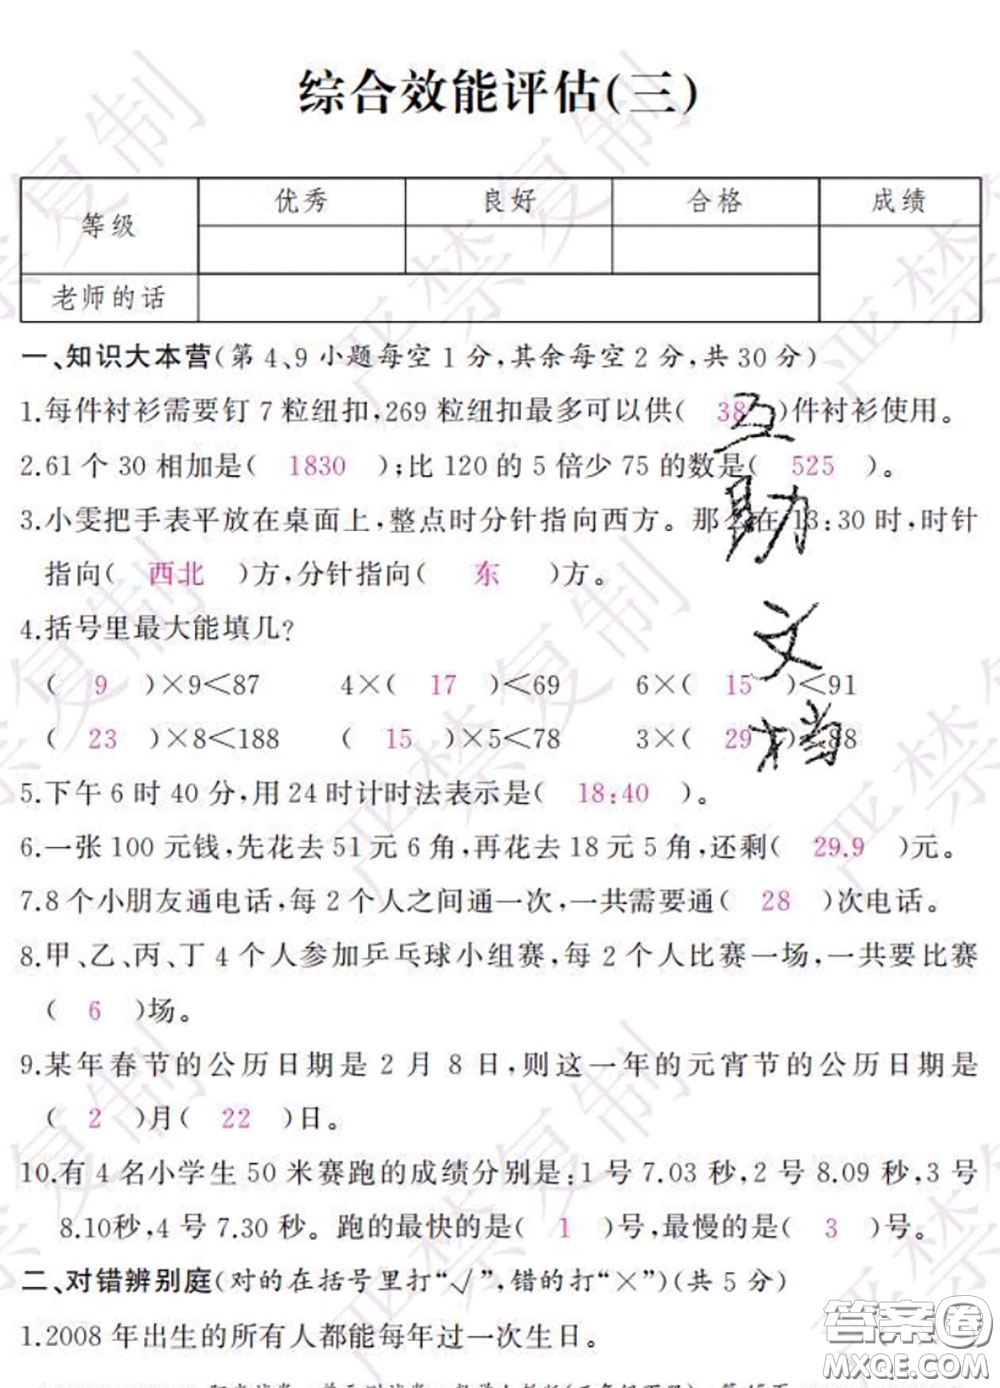 综合效能评估(三)
等级 优秀 良好 合格 成绩
老师的话
一、知识大本营(第4、9小题每空1分,其余每空2分,共30分)
1.每件衬衫需要钉7粒纽扣,269粒纽扣最多可以供( 38 )件衬衫使用。
2.61个30相加是( 1830 );比120的5倍少75的数是( 525 )。
3.小雯把手表平放在桌面上,整点时分针指向西方。那么在13:30时,时针
指向( 西北 )方,分针指向( 东 )方。
4.括号里最大能填几?
( 9 )×9<87 4×( 17 )<69 6×( 15 )<91
( 23 )×8<188 ( 15 )×5<78 3×( 29 )<88
5.下午6时40分,用24时计时法表示是( 18:40 )。
6.一张100元钱,先花去51元6角,再花去18元5角,还剩( 29.9 )元。
7.8个小朋友通电话,每2个人之间通一次,一共需要通( 28 )次电话。
8.甲、乙、丙、丁4个人参加乒乓球小组赛,每2个人比赛一场,一共要比赛
( 6 )场。
9.某年春节的公历日期是2月8日,则这一年的元宵节的公历日期是
( 2 )月( 22 )日。
10.有4名小学生50米赛跑的成绩分别是:1号7.03秒,2号8.09秒,3号
8.10秒,4号7.30秒。跑的最快的是( 1 )号,最慢的是( 3 )号。
二、对错辨别庭(对的在括号里打“√”,错的打“×”)(共5分)
1.2008年出生的所有人都能每年过一次生日。
互助文档
严禁复制
答案圈
MXQE.COM